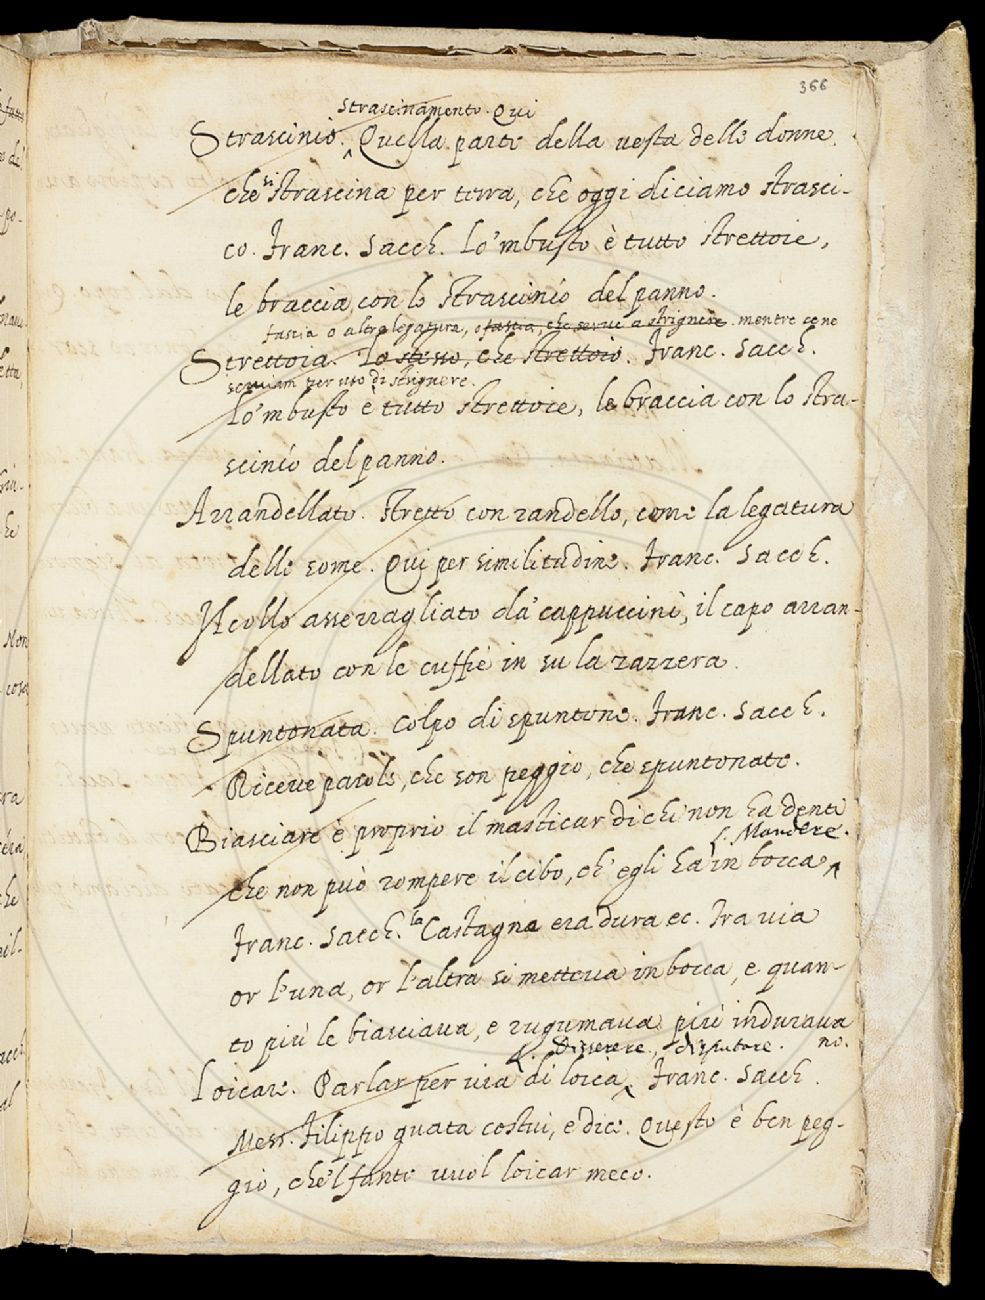 366
Strascinamento. Qui
Strascinio. Quella parte della vesta delle donne,
che si strascina per terra, che oggi diciamo strasci-
co. Franc. Sacch. Lo'mbusto è tutto strettoie,
le braccia, con lo strascinio del panno.
fascia o altra legatura, o fascia, che serve a strignere. mentre ce ne
Strettoia. Lo stesso, che strettoio. Franc. Sacch.
serviam per uso di strignere.
Lo'mbusto è tutto strettoie, le braccia con lo stra-
scinio del panno.
Arrandellato. Stretto con randello, come la legatura
delle some. Qui per similitudine. Franc. Sacch.
Il collo asserragliato da' cappuccini, il capo arran-
dellato con le cuffie in su la zazzera.
Spuntonata. Colpo di spuntone. Franc. Sacch.
Riceve parole, che son peggio, che spuntonate.
Biasciare è proprio il masticar di chi non ha denti
L. Mandere.
che non può rompere il cibo, ch'egli ha in bocca
Franc. Sacch. la Castagna era dura ec. Tra via
or l'una, or l'altra si metteva in bocca, e quan-
to più le biasciava, e rugumava più indurava
no.
L. Disserere, disputare.
Loicare. Parlar per via di loica. Franc. Sacch.
Mess. Filippo guata costui, e dice. Questo è ben peg-
gio, che'l fante vuol loicar meco.